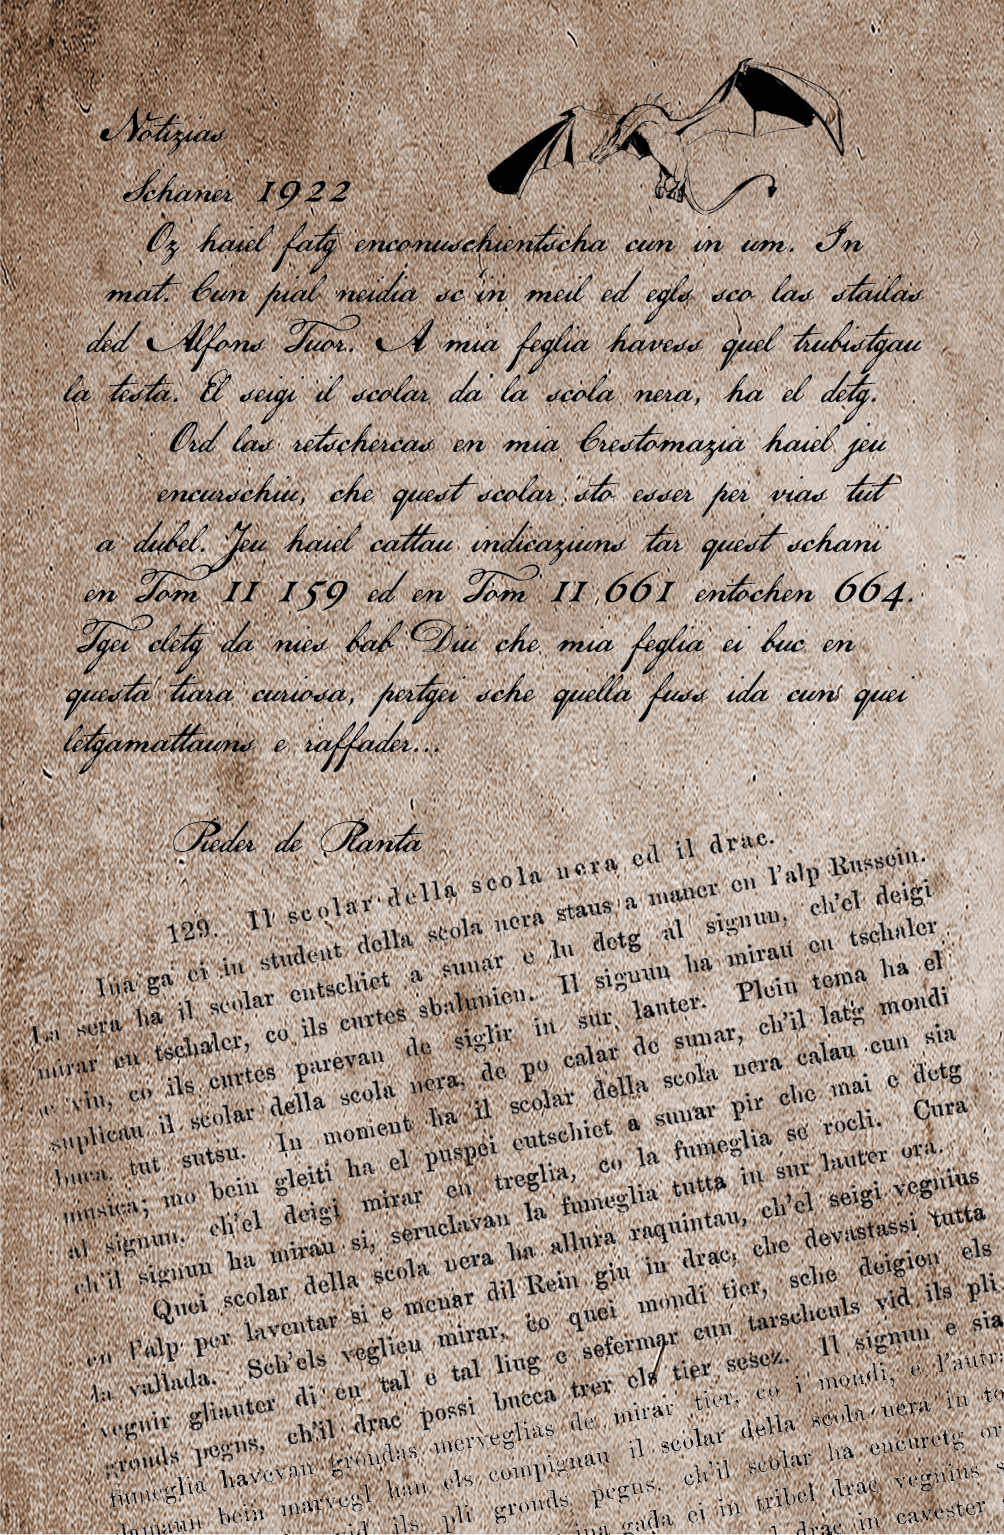 Notizias
Schaner 1922
Oz haiel fatg enconuschientscha cun in um. In
mat. Cun pial neidia sc'in meil ed egls sco las stailas
ded Alfons Tuor. A mia feglia havess quel trubistgau
la testa. El seigi il scolar da la scola nera, ha el detg.
Ord las retschercas en mia Crestomazia haiel jeu
encurschiu, che quest scolar sto esser per vias tut
a dubel. Jeu haiel cattau indicaziuns tar quest schani
en Tom II 159 ed en Tom II 661 entochen 664.
Tgei cletg da nies bab Diu che mia feglia ei buc en
questa tiara curiosa, pertgei sche quella fuss ida cun quei
letgamattauns e raffader...
Pieder de Planta
129. Il scolar della scola nera ed il drac.
Ina ga ei in student della scola nera staus a maner en l'alp Russein.
La sera ha il scolar entschiet a sunar e lu detg al signun, ch'el deigi
mirar en tschaler, co ils curtes sbalunien. Il signun ha mirau en tschaler
e viu, co ils curtes parevan de siglir in sur lauter. Plein tema ha el
suplicau il scolar della scola nera, de po calar de sunar, ch'il latg mondi
buca tut sutsu. In moment ha il scolar della scola nera calau cun sia
musica; mo bein gleiti ha el puspei entschiet a sunar pir che mai e detg
al signun, ch'el deigi mirar en treglia, co la fumeglia se rocli. Cura
ch'il signun ha mirau si, seruclavan la fumeglia tutta in sur lauter ora.
Quei scolar della scola nera ha allura raquintau, ch'el seigi vegnius
en l'alp per laventar si e menar dil Rein giu in drac, che devastassi tutta
la vallada. Sch'els veglieu mirar, co quei mondi tier, sche deigien els
vegnir gliauter di en tal e tal liug e sefermar cun tarscheuls vid ils pli
gronds pegns, ch'il drac possi bucca trer els tier sesez. Il signun e sia
fumeglia havevan grondas merveglias de mirar tier, co i mondi, e l'autra
damaun bein marvegl han els compignau il scolar della scola nera in
vid ils pli gronds pegns, ch'il scolar ha encuretg
ina gada ei in tribel drac vegnius
drac in cavester